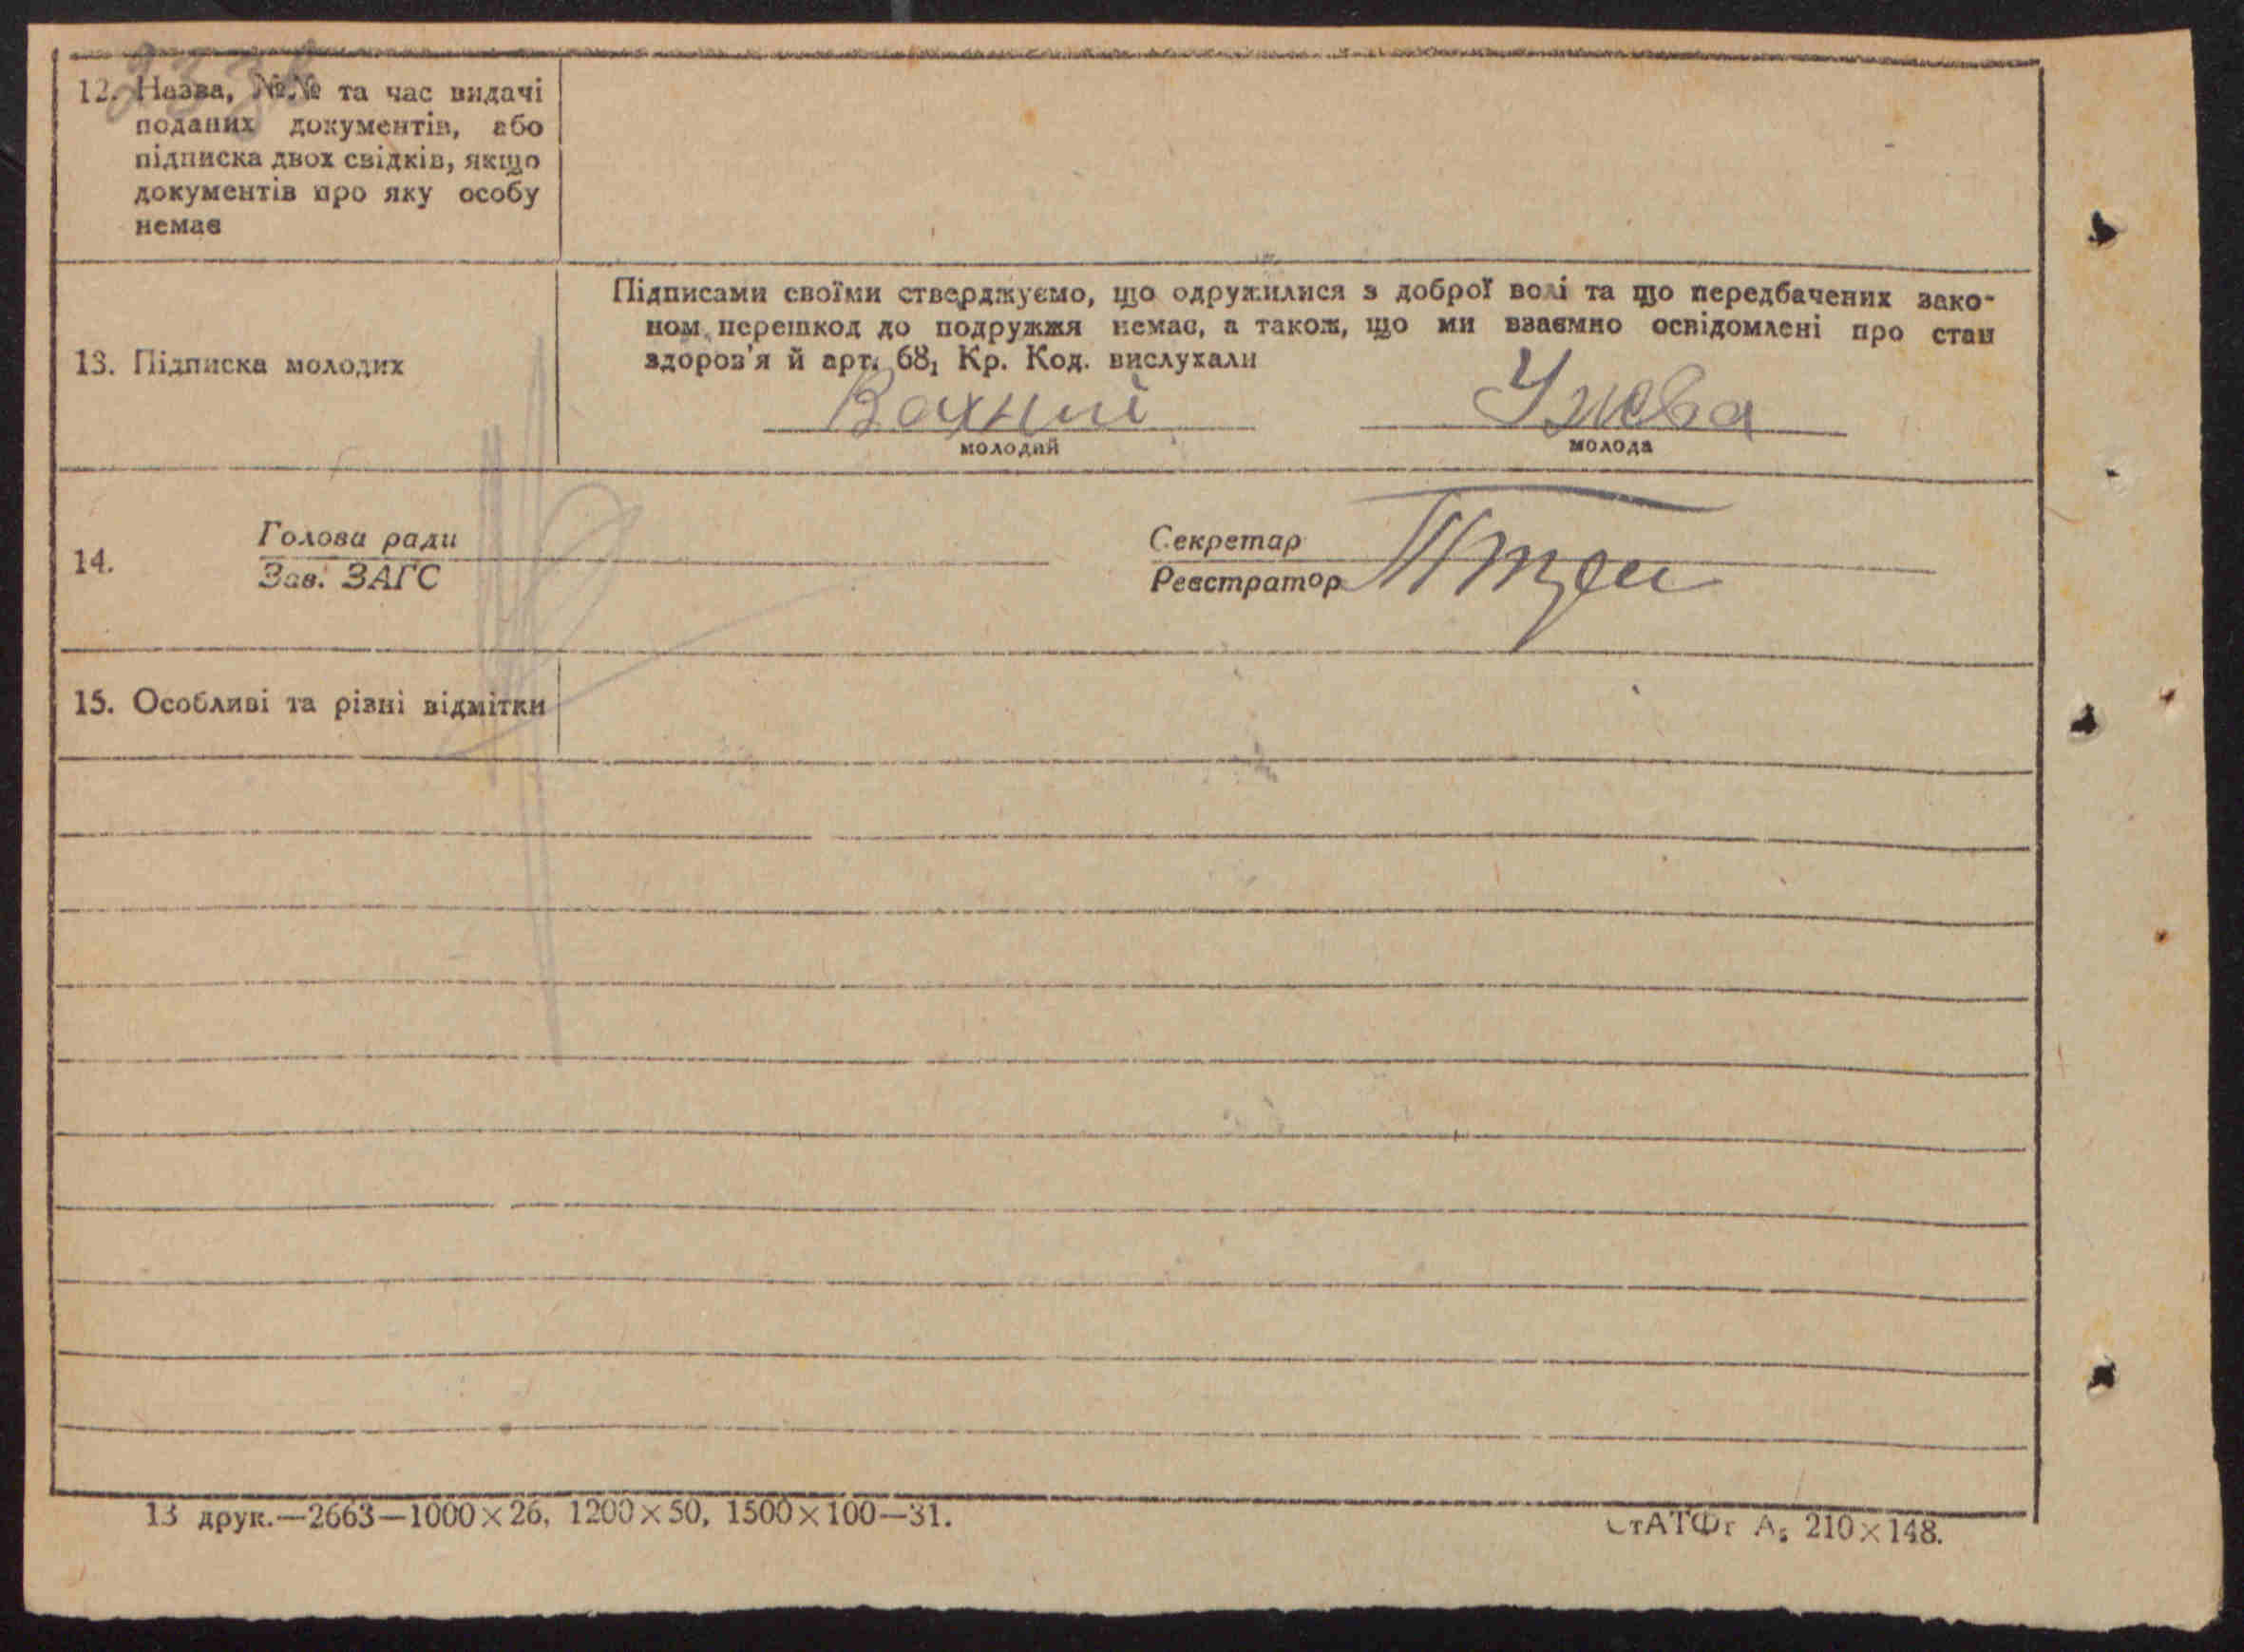 12. Назва, №№ та час видачі
поданих документів, або
підписка двох свідків, якщо
документів про яку особу
немає
13. Підписка молодих
Підписами своїми стверджуємо, що одружилися з доброї волі та що передбачених зако-
ном перешкод до подружжя немає, а також, що ми взаємно освідомлені про стан
здоров'я й арт. 68, Кр. Код. вислухали
Вахний
молодий
молода
14.
Голова ради
Зав. ЗАГС
Секретар
Реєстратор
15. Особливі та різні відмітки
13 друк.—2663—1000×26, 1200×50, 1500×100—31.
СтАТФг А5 210×148.